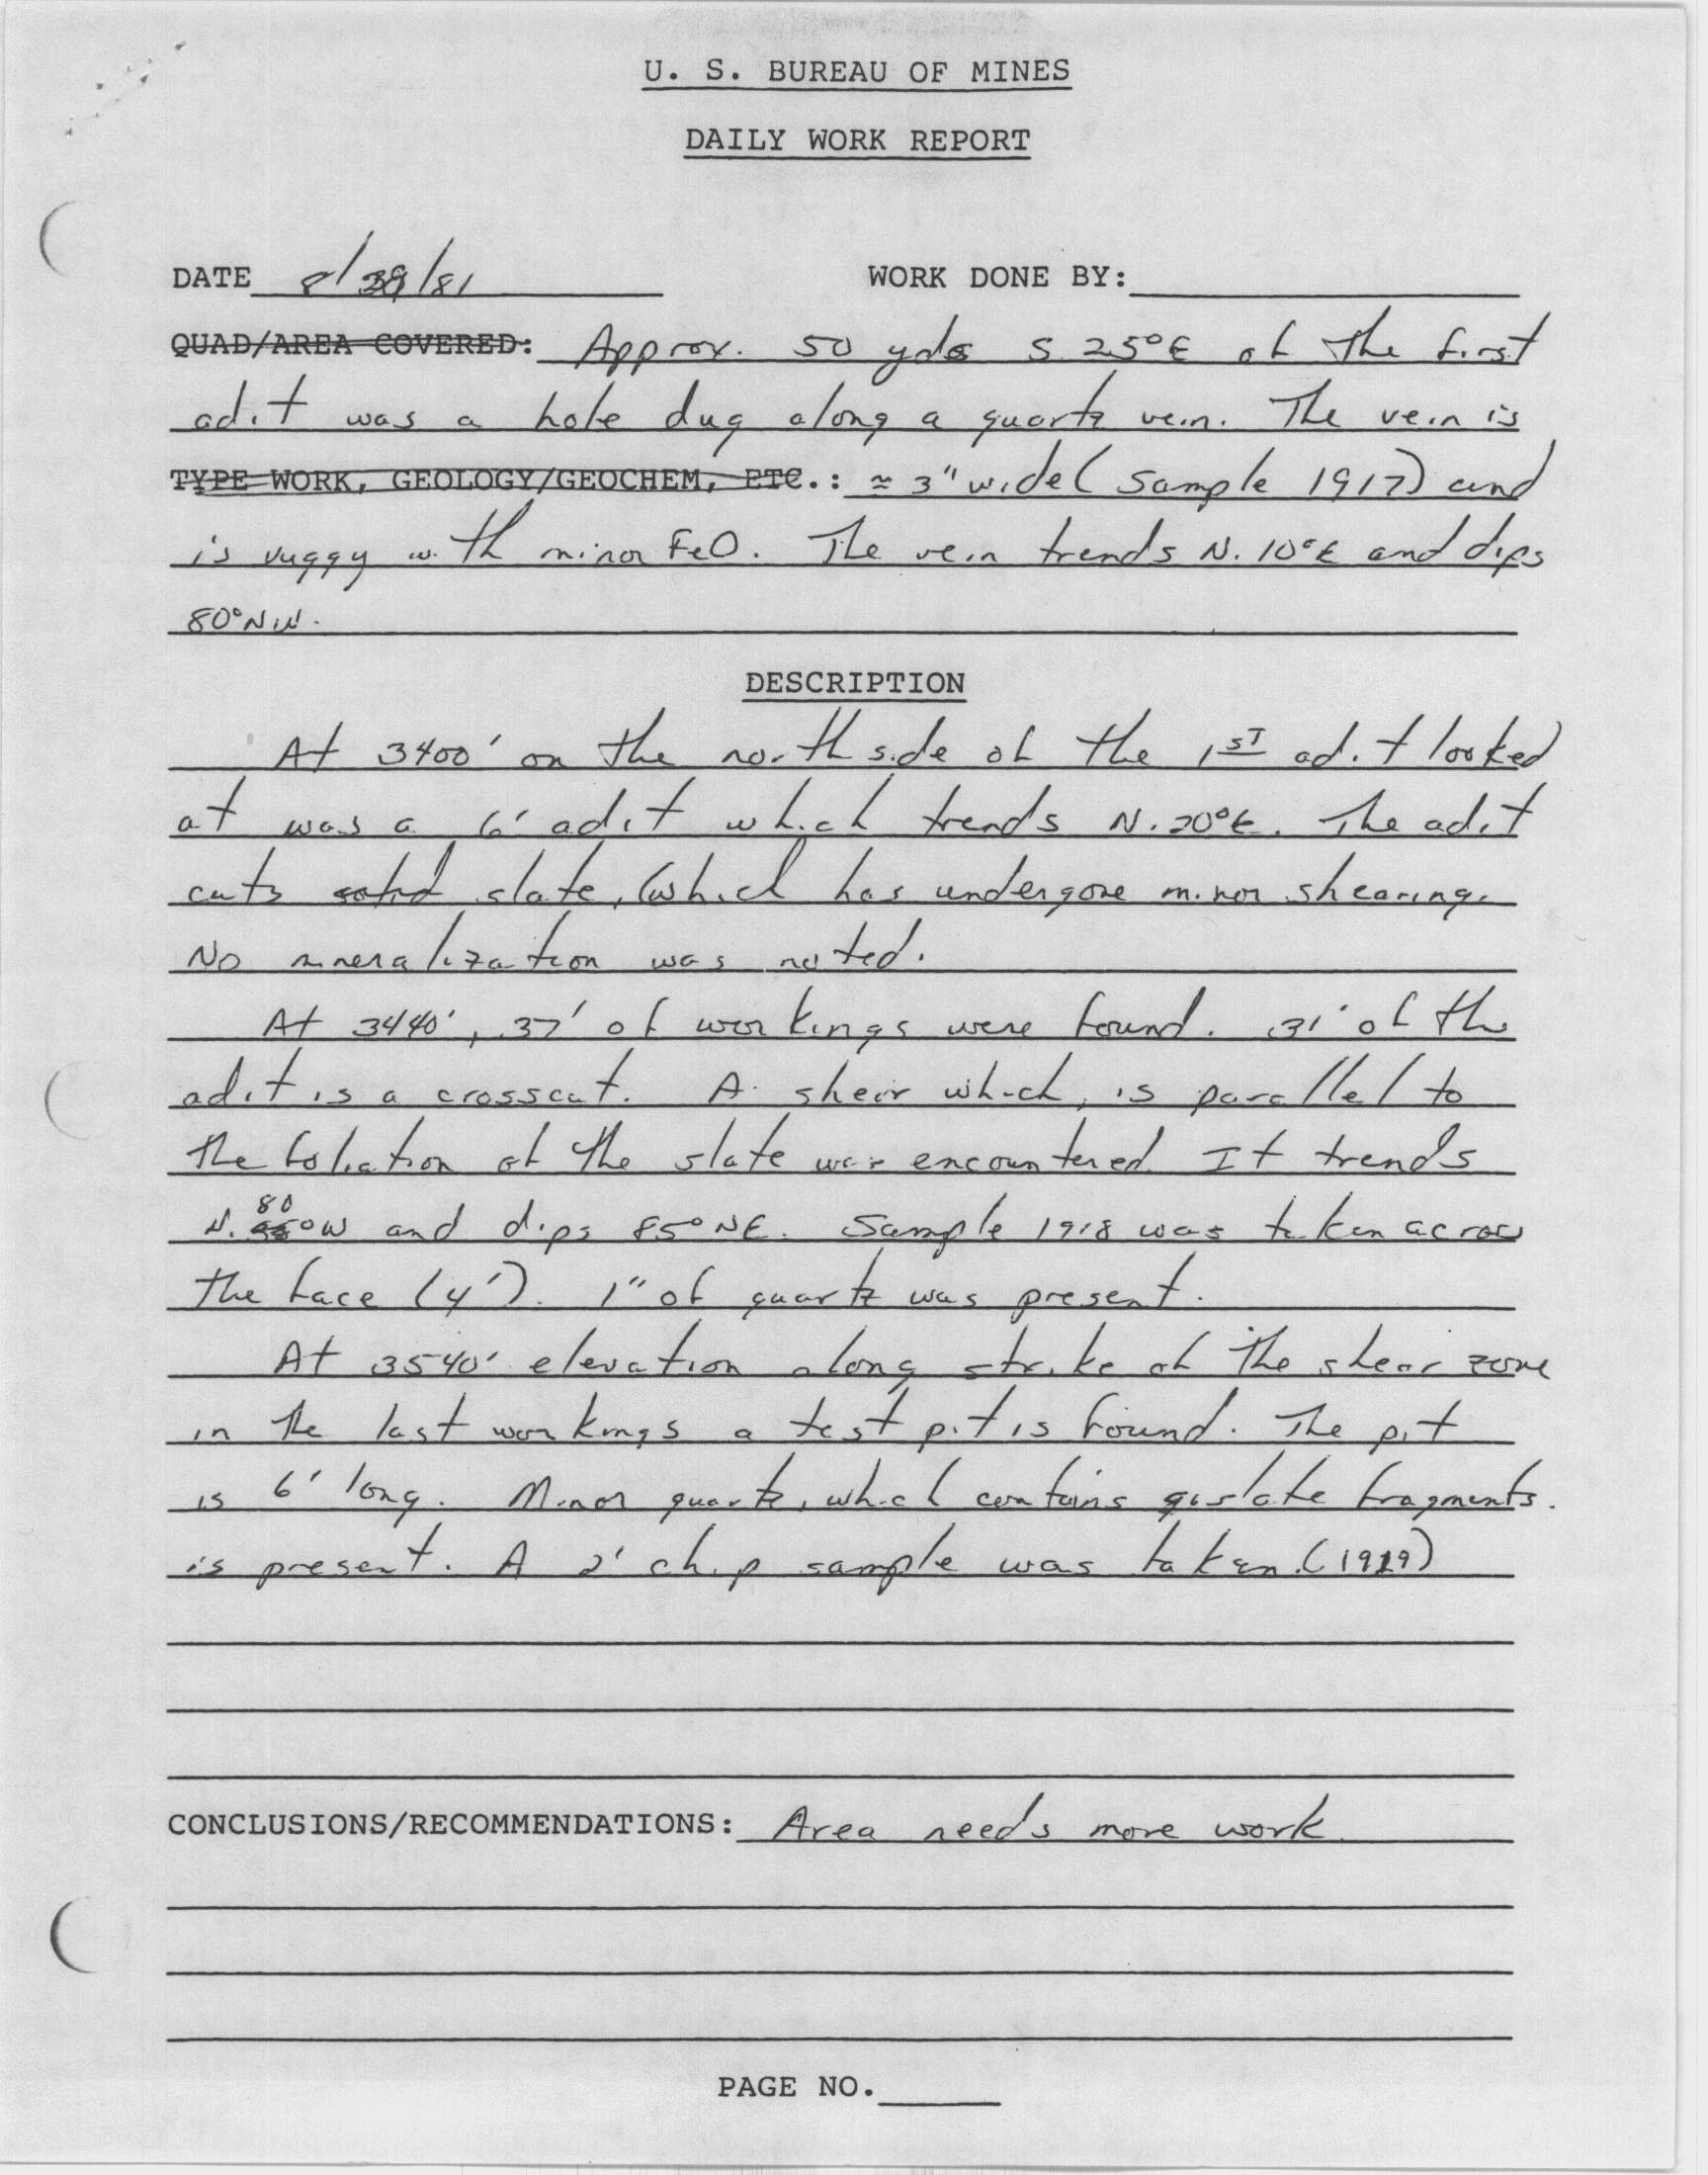 U. S. BUREAU OF MINES
DAILY WORK REPORT
DATE 8/29/81 WORK DONE BY:
QUAD/AREA COVERED: Approx. 50 yds S 25°E of the first
adit was a hole dug along a quartz vein. The vein is
TYPE WORK, GEOLOGY/GEOCHEM, ETC.: ≈ 3" wide (Sample 1917) and
is vuggy with minor FeO. The vein trends N. 10°E and dips
80°NW.
DESCRIPTION
At 3400' on the north side of the 1ST adit looked
at was a 6' adit which trends N.20°E. The adit
cuts solid slate, which has undergone minor shearing.
No mineralization was noted.
At 3440', 37' of workings were found. 31' of the
adit is a crosscut. A shear which, is parallel to
the foliation of the slate was encountered. It trends
N. 80°W and dips 85°NE. Sample 1918 was taken across
the face (4'). 1" of quartz was present.
At 3540' elevation along strike of the shear zone
in the last workings a test pit is found. The pit
is 6' long. Minor quartz, which contains slate fragments.
is present. A 2' chip sample was taken. (1919)
CONCLUSIONS/RECOMMENDATIONS: Area needs more work
PAGE NO.